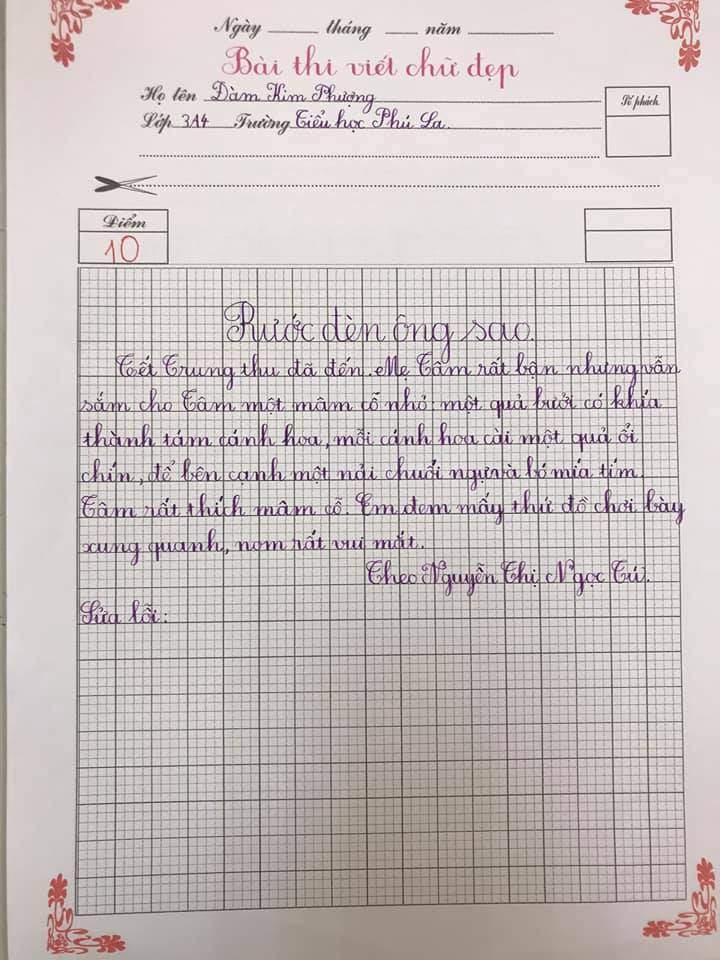 Ngày ______ tháng ____ năm ________
Bài thi viết chữ đẹp
Họ tên Đàm Kim Phượng
Số phách
Lớp 3A4 Trường Tiểu học Phú La.
Điểm
10
Rước đèn ông sao.
Tết Trung thu đã đến. Mẹ Tâm rất bận nhưng vẫn
sắm cho Tâm một mâm cỗ nhỏ: một quả bưởi có khía
thành tám cánh hoa, mỗi cánh hoa cài một quả ổi
chín, để bên cạnh một nải chuối ngự và bó mía tím.
Tâm rất thích mâm cỗ. Em đem mấy thứ đồ chơi bày
xung quanh, nom rất vui mắt.
Theo Nguyễn Thị Ngọc Tú.
Sửa lỗi: